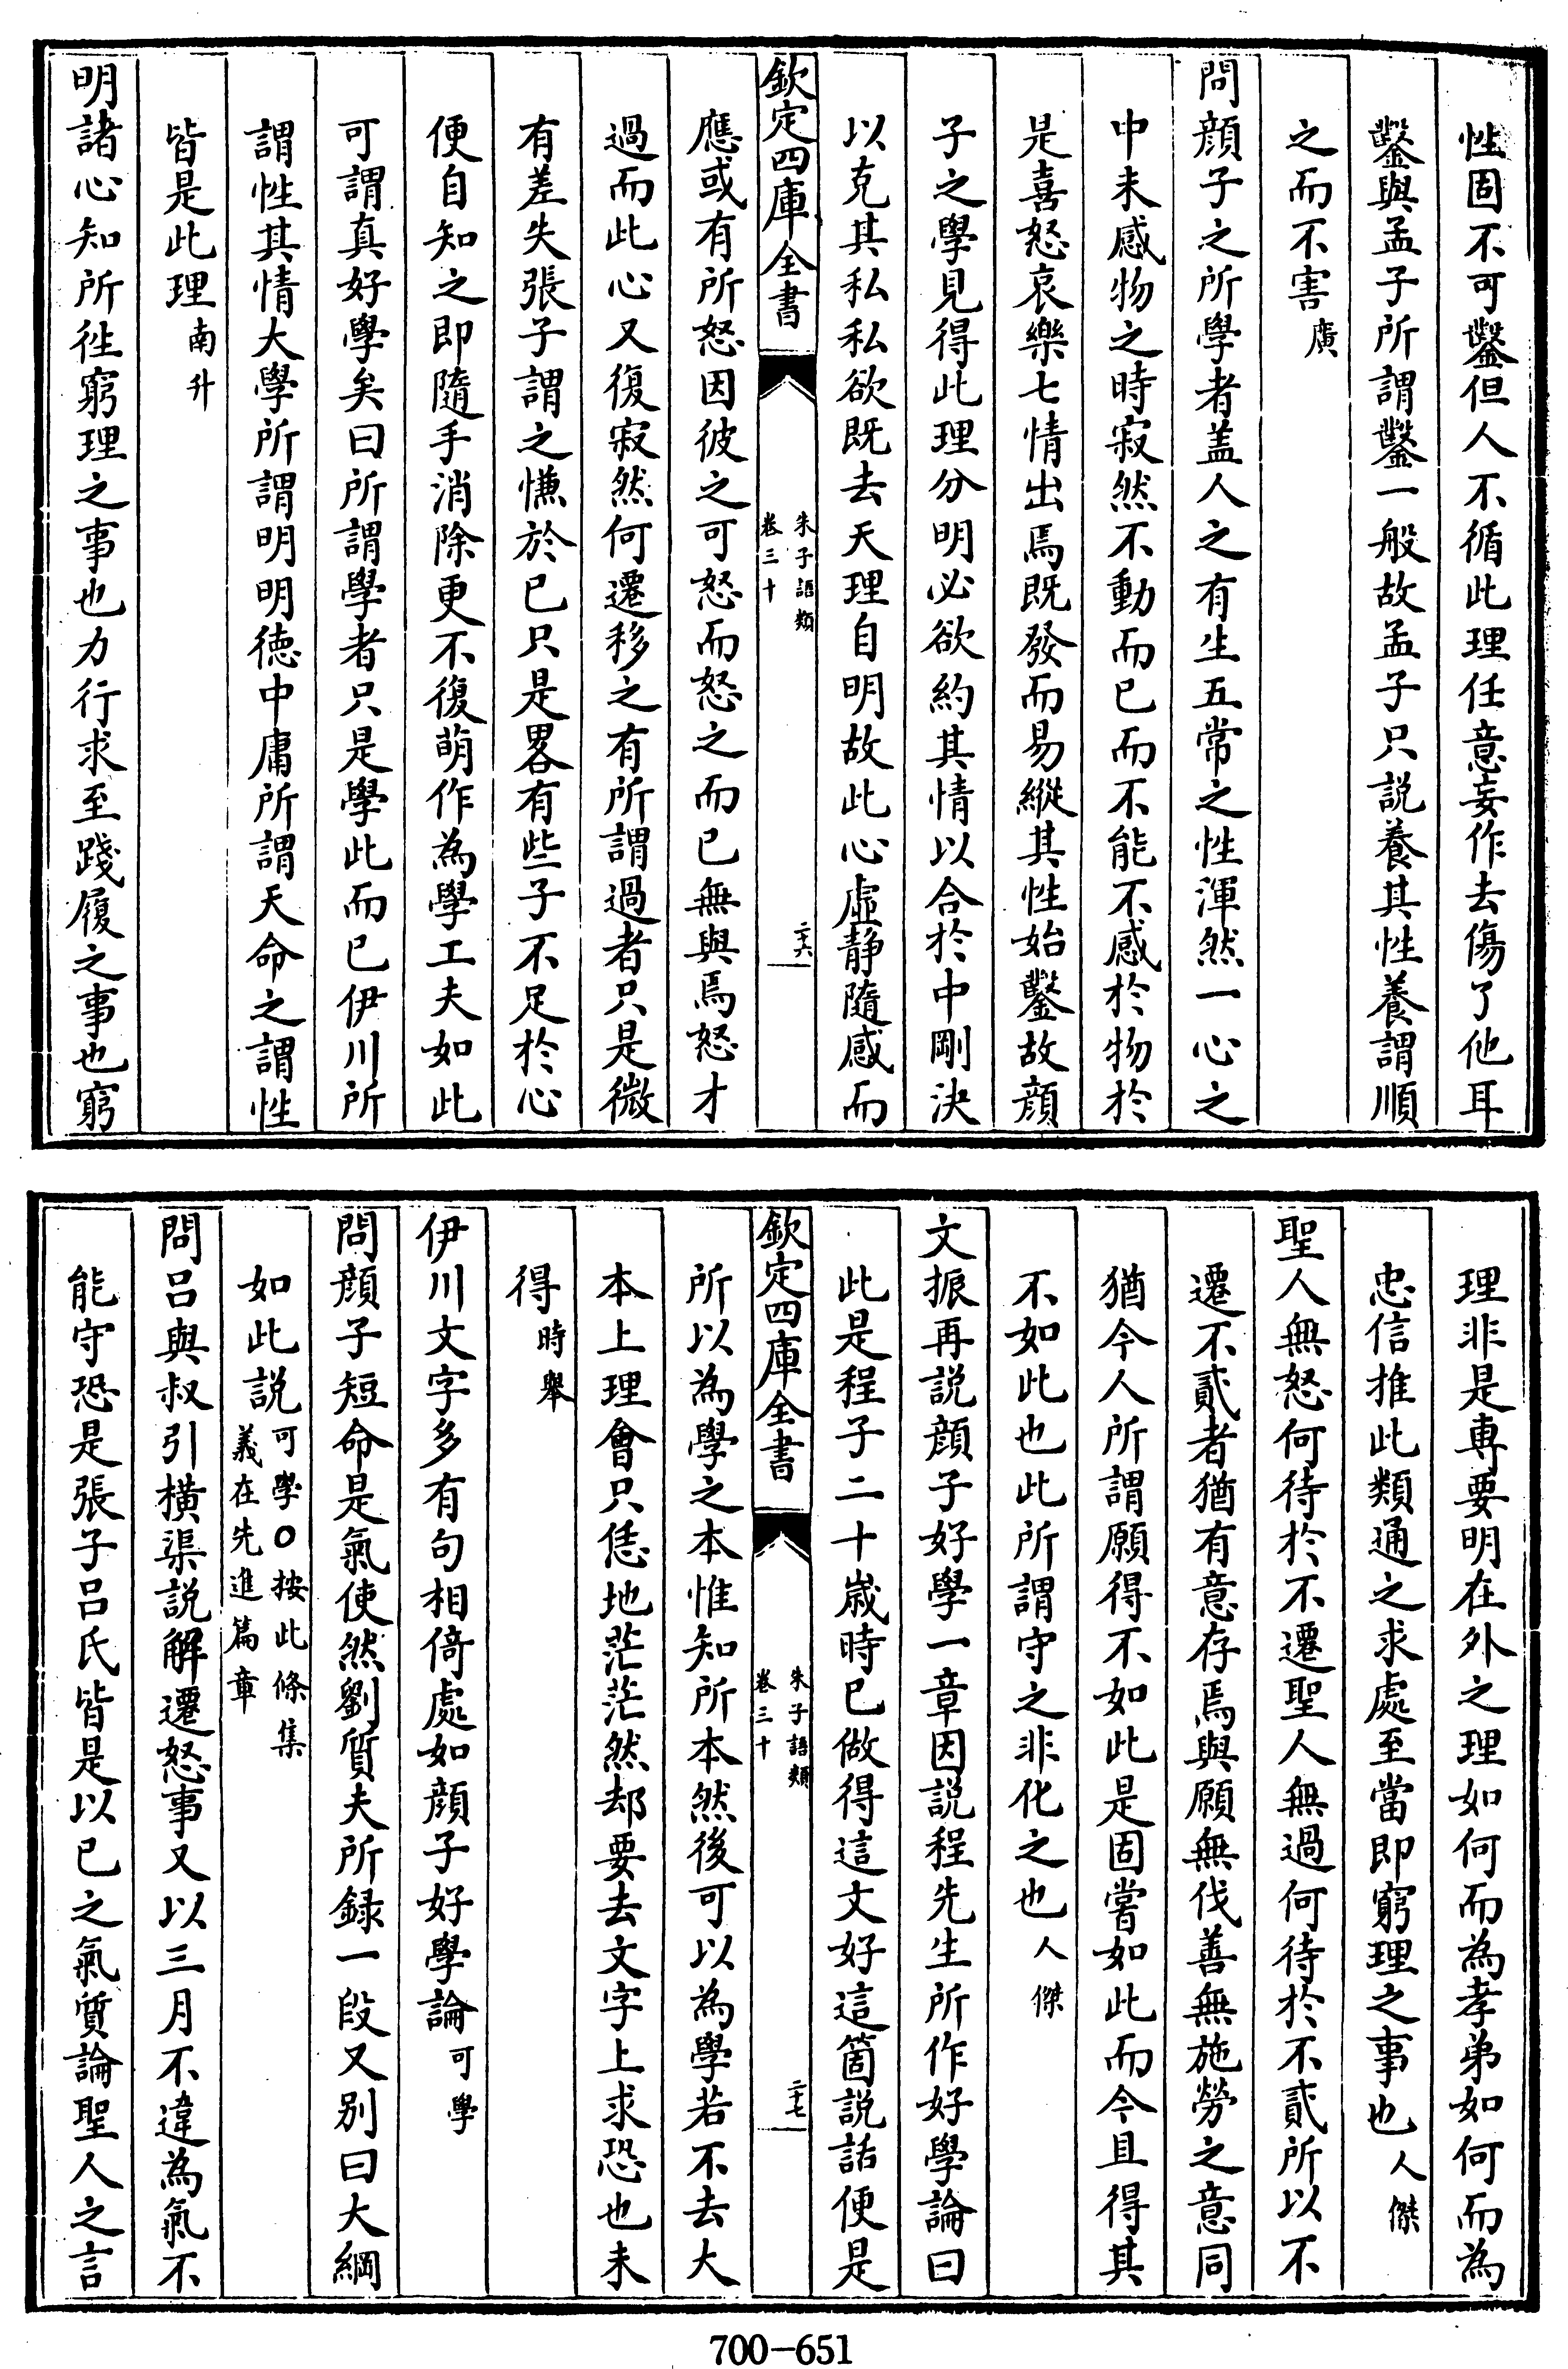 性固不可鑿但人不循此理任意妄作去傷了他耳
鑿與孟子所謂鑿一般故孟子只説養其性養謂順
之而不害廣
問顔子之所學者盖人之有生五常之性渾然一心之
中未感物之時寂然不動而已而不能不感於物於
是喜怒哀樂七情出焉既發而易縱其性始鑿故顔
子之學見得此理分明必欲約其情以合於中剛決
以克其私私欲既去天理自明故此心虚静隨感而
欽定四庫全書
朱子語類
卷三十
二六
應或有所怒因彼之可怒而怒之而已無與焉怒才
過而此心又復寂然何遷移之有所謂過者只是微
有差失張子謂之慊於已只是畧有些子不足於心
便自知之即隨手消除更不復萌作為學工夫如此
可謂真好學矣曰所謂學者只是學此而已伊川所
謂性其情大學所謂明明徳中庸所謂天命之謂性
皆是此理南升
明諸心知所徃窮理之事也力行求至踐履之事也窮
理非是専要明在外之理如何而為孝弟如何而為
忠信推此類通之求處至當即窮理之事也人傑
聖人無怒何待於不遷聖人無過何待於不貳所以不
遷不貳者猶有意存焉與願無伐善無施勞之意同
猶今人所謂願得不如此是固嘗如此而今且得其
不如此也此所謂守之非化之也人傑
文振再説顔子好學一章因説程先生所作好學論曰
此是程子二十歳時已做得這文好這箇説話便是
欽定四庫全書
朱子語類
卷三十
二七
所以為學之本惟知所本然後可以為學若不去大
本上理會只恁地茫茫然却要去文字上求恐也未
得時舉
伊川文字多有句相倚處如顔子好學論可學
問顔子短命是氣使然劉質夫所録一段又别曰大綱
如此説可學○按此條集
義在先進篇章
問吕與叔引横渠説解遷怒事又以三月不違為氣不
能守恐是張子吕氏皆是以已之氣質論聖人之言
700-651